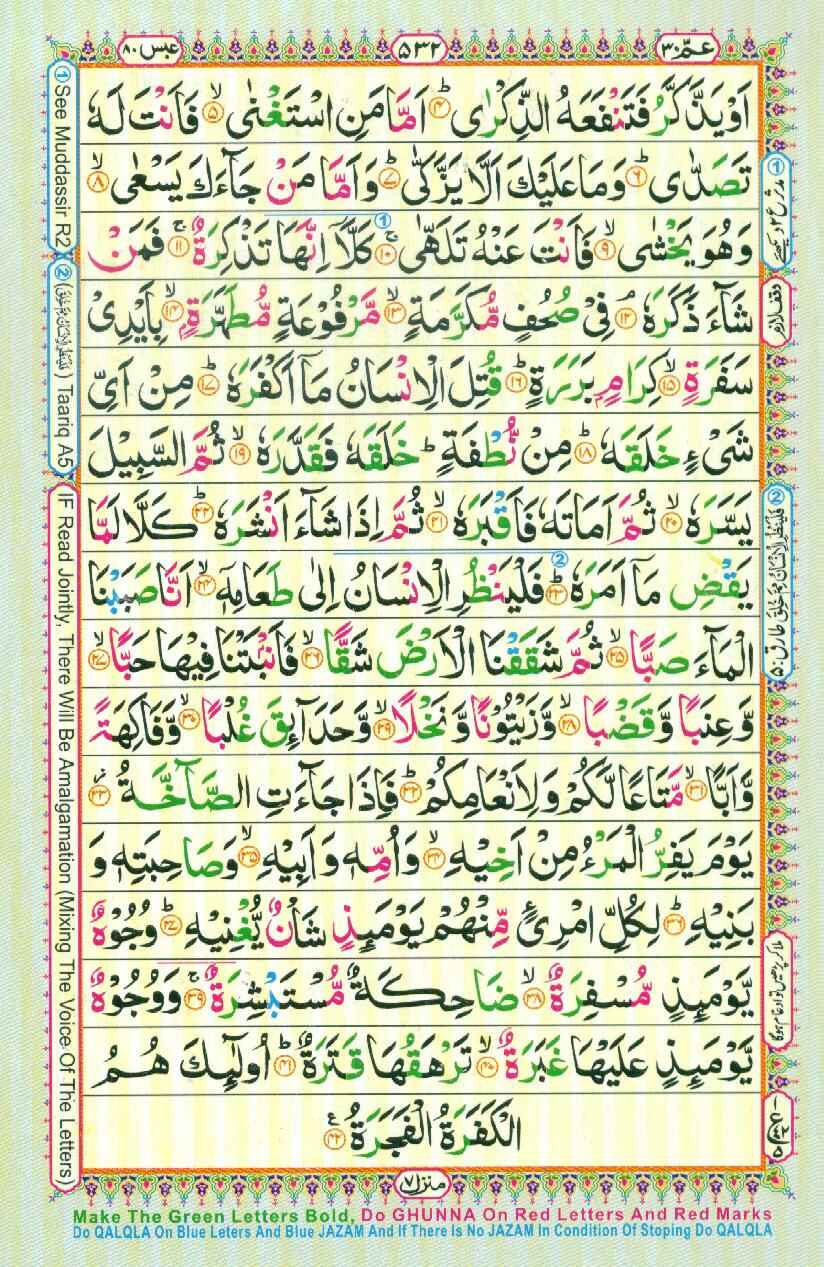 عبس ٨٠
٥٣٢
عمّ ٣٠
اَوْ يَذَّكَّرُ فَتَنْفَعَهُ الذِّكْرٰى ؕ‏ ﴿۴﴾ اَمَّا مَنِ اسْتَغْنٰى ۙ‏ ﴿۵﴾ فَاَنْتَ لَهٗ
تَصَدّٰى ؕ‏ ﴿۶﴾ وَمَا عَلَيْكَ اَلَّا يَزَّكّٰى ؕ‏ ﴿۷﴾ وَاَمَّا مَنْ جَآءَكَ يَسْعٰى ۙ‏ ﴿۸﴾
وَهُوَ يَخْشٰى ۙ‏ ﴿۹﴾ فَاَنْتَ عَنْهُ تَلَهّٰى ۚ‏ ﴿۱۰﴾ كَلَّاۤ اِنَّهَا تَذْكِرَةٌ ۚ‏ ﴿۱۱﴾ فَمَنْ
شَآءَ ذَكَرَهٗ ۘ‏ ﴿۱۲﴾ فِىْ صُحُفٍ مُّكَرَّمَةٍ ۙ‏ ﴿۱۳﴾ مَّرْفُوْعَةٍ مُّطَهَّرَةٍ ۭ ۙ‏ ﴿۱۴﴾ بِاَيْدِىْ
سَفَرَةٍ ۙ‏ ﴿۱۵﴾ كِرَامٍۭ بَرَرَةٍ ؕ‏ ﴿۱۶﴾ قُتِلَ الْاِنْسَانُ مَاۤ اَكْفَرَهٗ ؕ‏ ﴿۱۷﴾ مِنْ اَىِّ
شَىْءٍ خَلَقَهٗ ؕ‏ ﴿۱۸﴾ مِنْ نُّطْفَةٍ ؕ خَلَقَهٗ فَقَدَّرَهٗ ۙ‏ ﴿۱۹﴾ ثُمَّ السَّبِيْلَ
يَسَّرَهٗ ۙ‏ ﴿۲۰﴾ ثُمَّ اَمَاتَهٗ فَاَقْبَرَهٗ ۙ‏ ﴿۲۱﴾ ثُمَّ اِذَا شَآءَ اَنْشَرَهٗ ؕ‏ ﴿۲۲﴾ كَلَّا لَمَّا
يَقْضِ مَاۤ اَمَرَهٗ ؕ‏ ﴿۲۳﴾ فَلْيَنْظُرِ الْاِنْسَانُ اِلٰى طَعَامِهٖۤ ۙ‏ ﴿۲۴﴾ اَنَّا صَبَبْنَا
الْمَآءَ صَبًّا ۙ‏ ﴿۲۵﴾ ثُمَّ شَقَقْنَا الْاَرْضَ شَقًّا ۙ‏ ﴿۲۶﴾ فَاَنْۢبَتْنَا فِيْهَا حَبًّا ۙ‏ ﴿۲۷﴾
وَّعِنَبًا وَّقَضْبًا ۙ‏ ﴿۲۸﴾ وَّزَيْتُوْنًا وَّنَخْلًا ۙ‏ ﴿۲۹﴾ وَّحَدَآئِقَ غُلْبًا ۙ‏ ﴿۳۰﴾ وَّفَاكِهَةً
وَّاَبًّا ۙ‏ ﴿۳۱﴾ مَّتَاعًا لَّكُمْ وَلِاَنْعَامِكُمْ ؕ‏ ﴿۳۲﴾ فَاِذَا جَآءَتِ الصَّآخَّةُ ؗ‏ ﴿۳۳﴾
يَوْمَ يَفِرُّ الْمَرْءُ مِنْ اَخِيْهِ ۙ‏ ﴿۳۴﴾ وَاُمِّهٖ وَاَبِيْهِ ۙ‏ ﴿۳۵﴾ وَصَاحِبَتِهٖ وَ
بَنِيْهِ ؕ‏ ﴿۳۶﴾ لِكُلِّ امْرِیٴٍ مِّنْهُمْ يَوْمَئِذٍ شَاْنٌ يُّغْنِيْهِ ؕ‏ ﴿۳۷﴾ وُجُوْهٌ
يَّوْمَئِذٍ مُّسْفِرَةٌ ۙ‏ ﴿۳۸﴾ ضَاحِكَةٌ مُّسْتَبْشِرَةٌ ۚ‏ ﴿۳۹﴾ وَوُجُوْهٌ
يَّوْمَئِذٍ عَلَيْهَا غَبَرَةٌ ۙ‏ ﴿۴۰﴾ تَرْهَقُهَا قَتَرَةٌ ؕ‏ ﴿۴۱﴾ اُولٰٓئِكَ هُمُ
الْكَفَرَةُ الْفَجَرَةُ ﴿۴۲﴾ ع
① See Muddassir R2
② (فَلْيَنْظُرِ الْاِنْسَانُ مِمَّ خُلِقَ) Taariq A5
IF Read Jointly, There Will Be Amalgamation (Mixing The Voice Of The Letters)
①
وقف لازم
②
فَلْيَنْظُرِ الْاِنْسَانُ مِمَّ خُلِقَ طارق: ۵
منزل ٧
Make The Green Letters Bold, Do GHUNNA On Red Letters And Red Marks
Do QALQLA On Blue Leters And Blue JAZAM And If There Is No JAZAM In Condition Of Stoping Do QALQLA